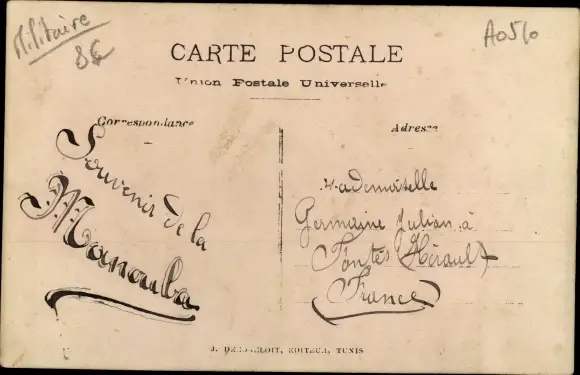 Militaire
8€
A0510
CARTE POSTALE
Union Postale Universelle
Correspondance
Adresse
Souvenir de la
Manouba
Mademoiselle
Germaine Julian à
Fontès (Hérault)
(France)
EDITEUR, TUNIS